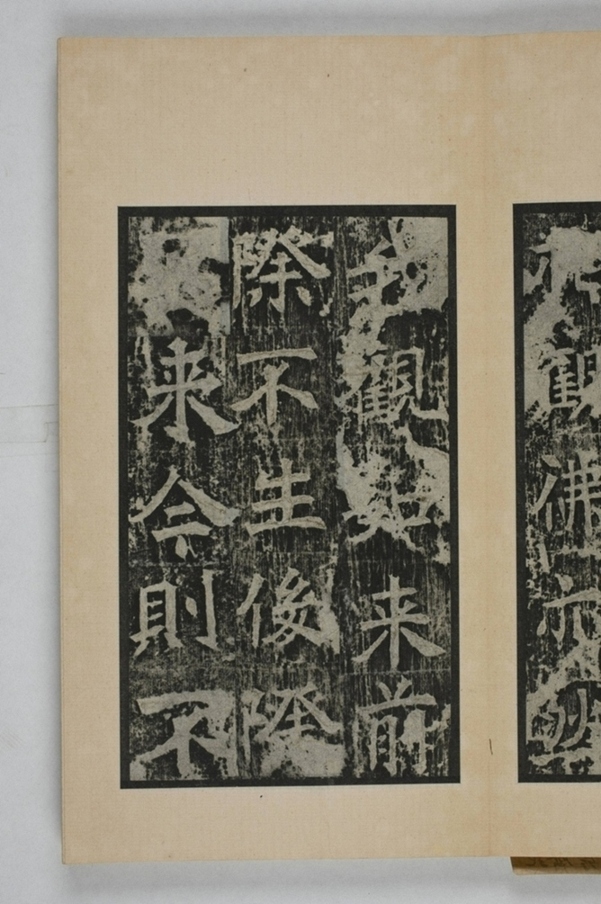 觀佛亦然
我觀如来前
際不生後際
来今則不